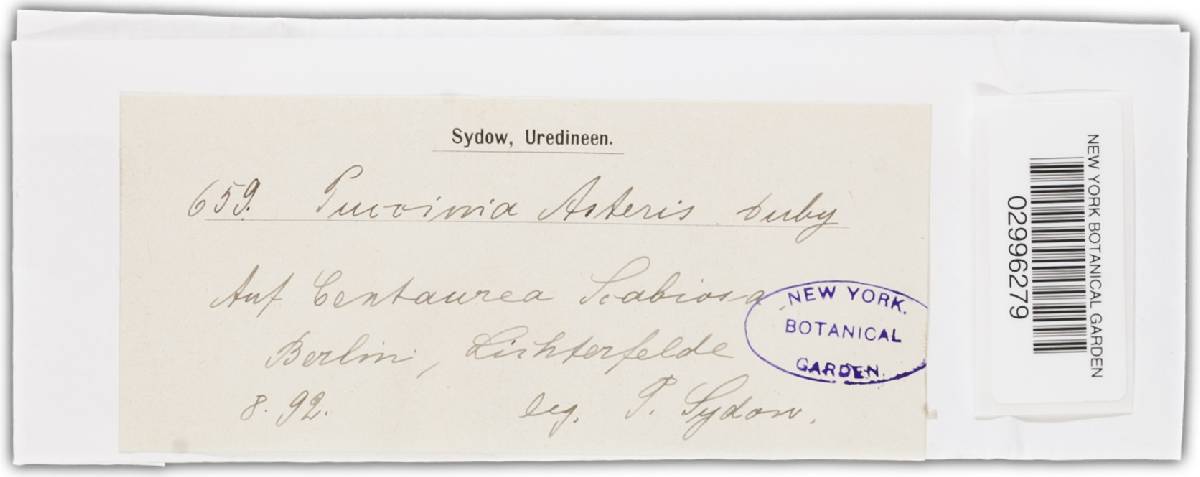 Sydow, Uredineen.
659. Puccinia Asteris Duby
Auf Centaurea Scabiosa
Berlin, Lichterfelde
8. 92. leg. P. Sydow.
NEW YORK.
BOTANICAL
GARDEN.
NEW YORK BOTANICAL GARDEN
02996279